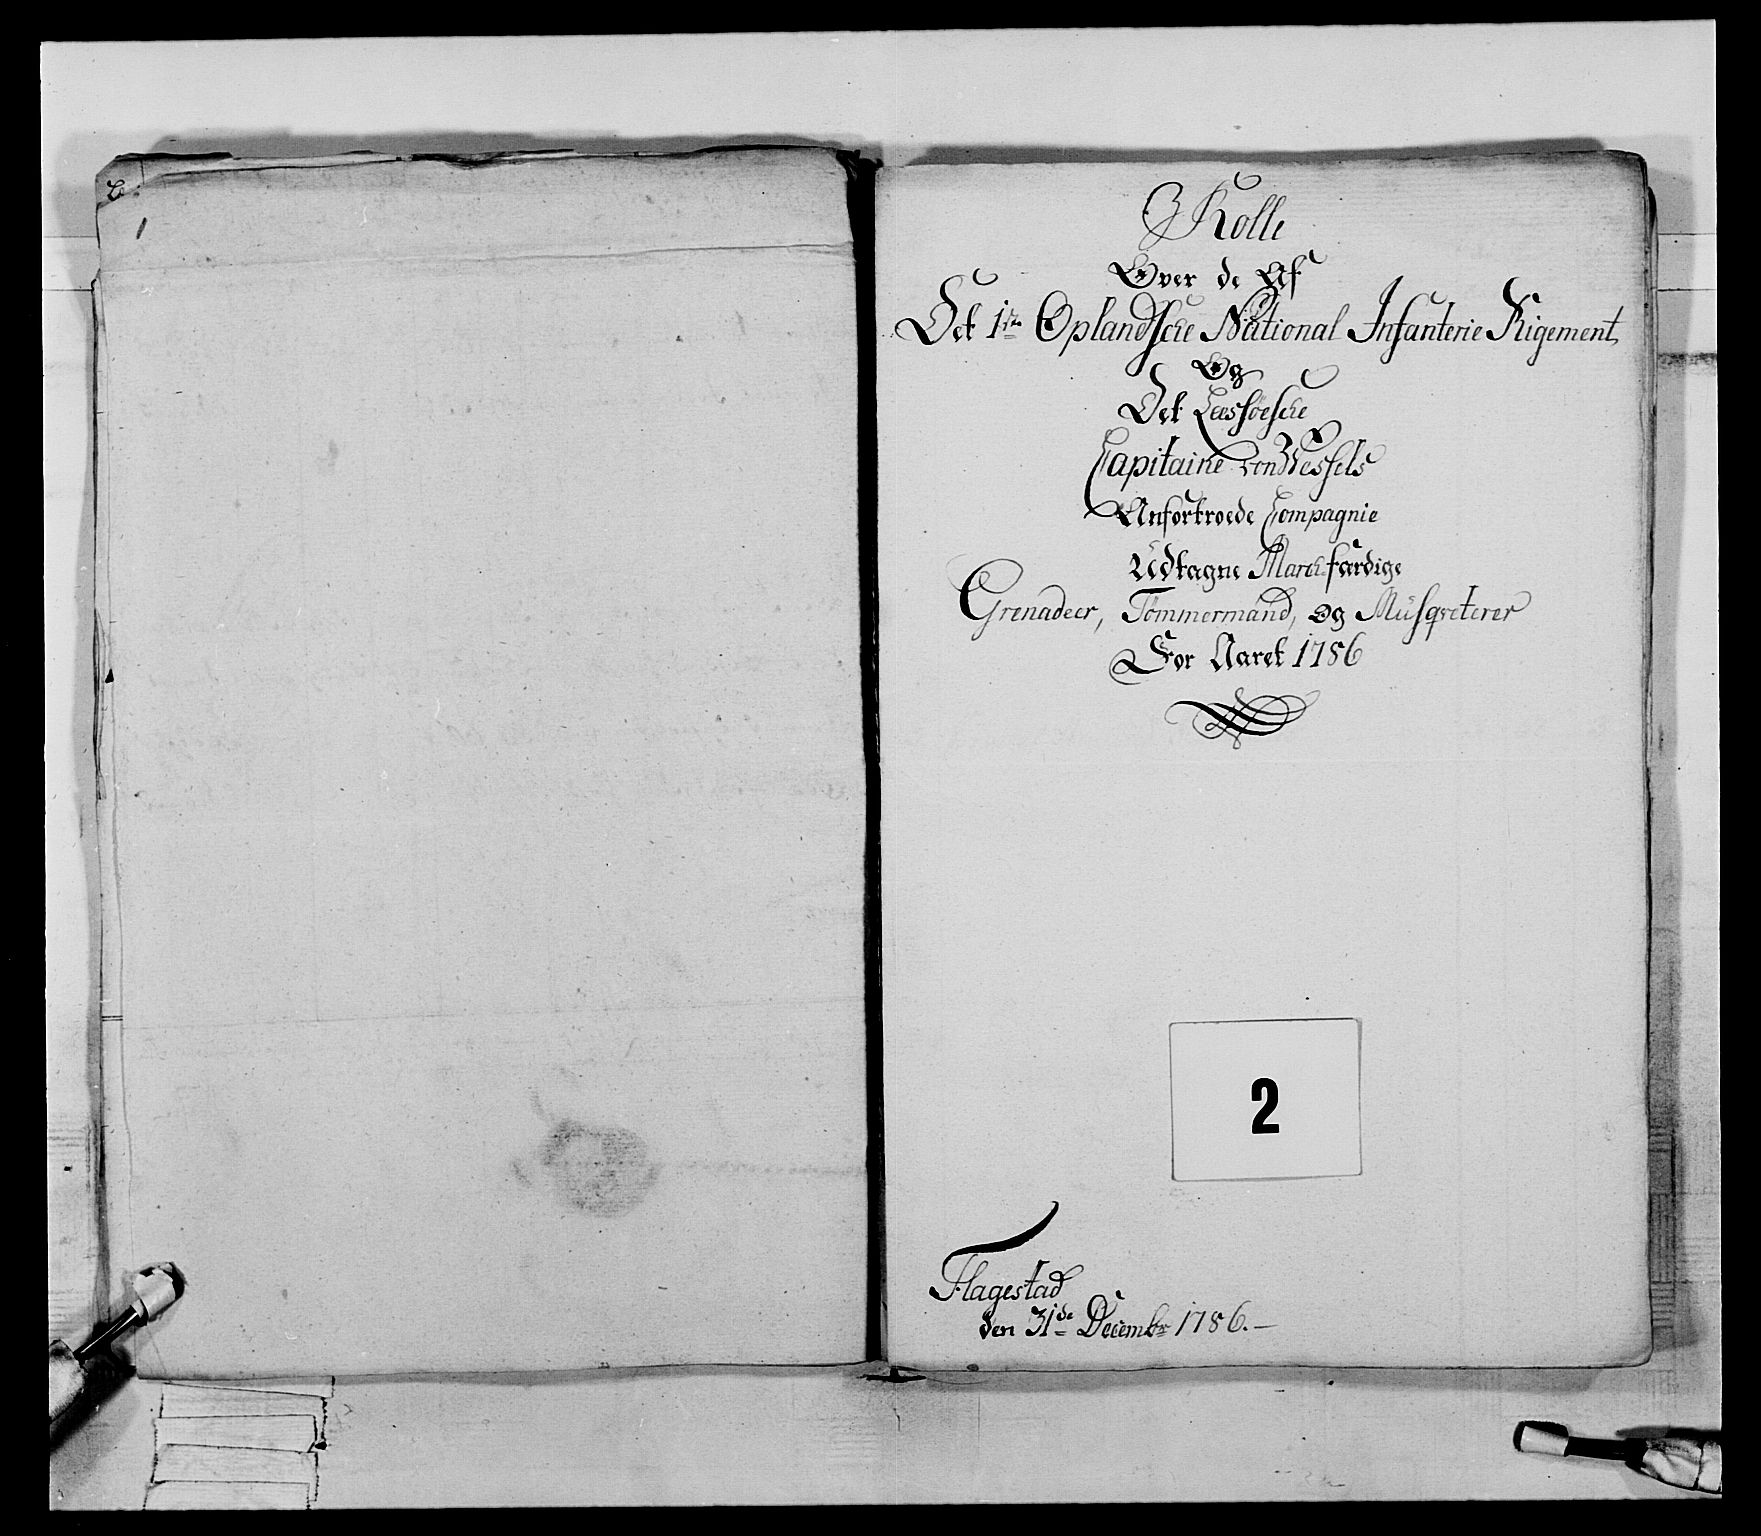 1
Rolle
Over de Af
Det 1ste Oplandsche National Infanterie Rigement
Og
Det Lessöesche
Capitaine von Wessels
Anfortroede Compagnie
Udtagne March færdige
Grenadeer, Tömmermænd, og Musqveterer
For Aaret 1786
2
Flagestad
den 31de Decembr 1786.—